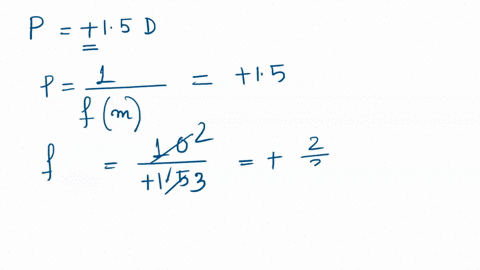 P = +1.5 D
P = 1 / f(m) = +1.5
f = 10 2 / +1.5 3 = + 2